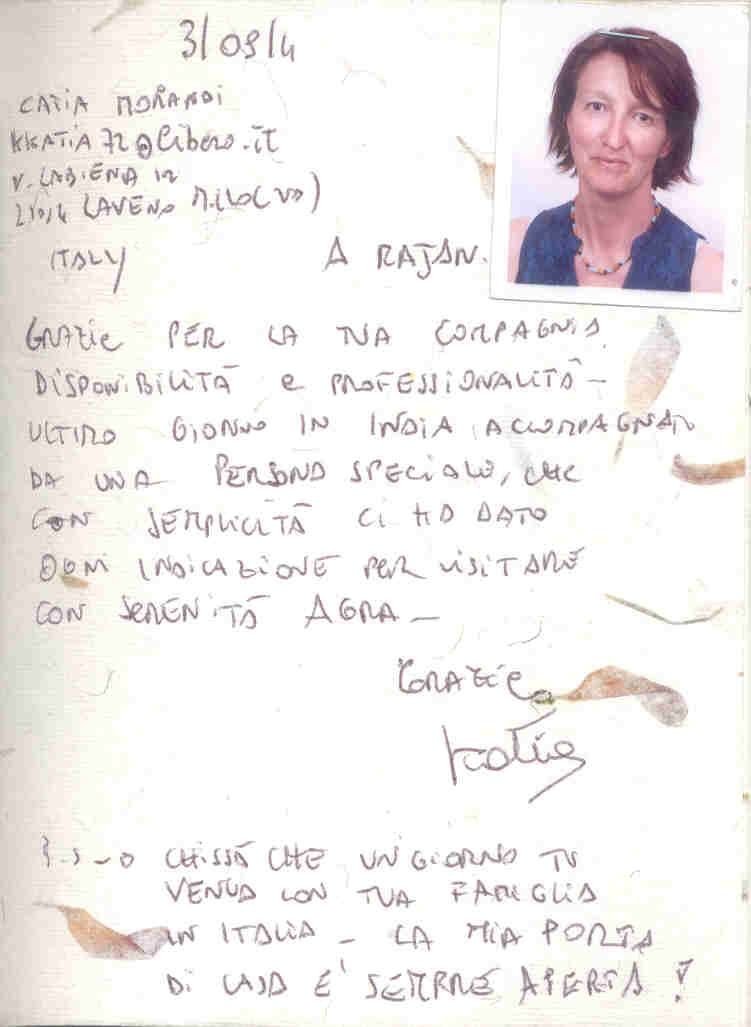 3/09/4
CATIA MORANDI
KKATIA72@libero.it
V. LABIENA 12
21014 LAVENO M.LLO (VA)
ITALY
A RAJAN.
GRAZIE PER LA TUA COMPAGNIA,
DISPONIBILITÀ e PROFESSIONALITÀ -
ULTIMO GIORNO IN INDIA ACCOMPAGNATI
DA UNA PERSONA SPECIALE, CHE
CON SEMPLICITÀ CI HA DATO
OGNI INDICAZIONE PER VISITARE
CON SERENITÀ AGRA -
GRAZIE
Katia
P.S - CHISSÀ CHE UN GIORNO TU
VENGA CON TUA FAMIGLIA
IN ITALIA - LA MIA PORTA
DI CASA E' SEMPRE APERTA !